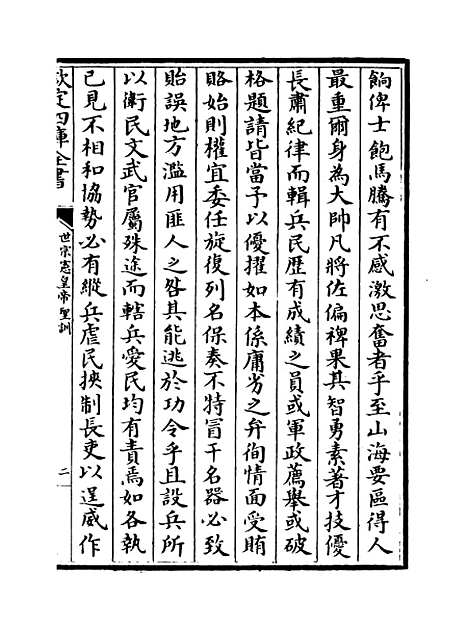 餉俾士飽馬騰有不感激思奮者乎至山海要區得人
最重爾身為大帥凡將佐偏裨果其智勇素著才技優
長肅紀律而輯兵民歴有成績之員或軍政薦舉或破
格題請皆當予以優擢如本係庸劣之弁徇情面受賄
賂始則權宜委任旋復列名保奏不特冒干名器必致
貽誤地方濫用匪人之咎其能逃於功令乎且設兵所
以衛民文武官屬殊途而轄兵愛民均有責焉如各執
已見不相和協勢必有縱兵虐民挾制長吏以逞威作
欽定四庫全書
世宗憲皇帝聖訓
二